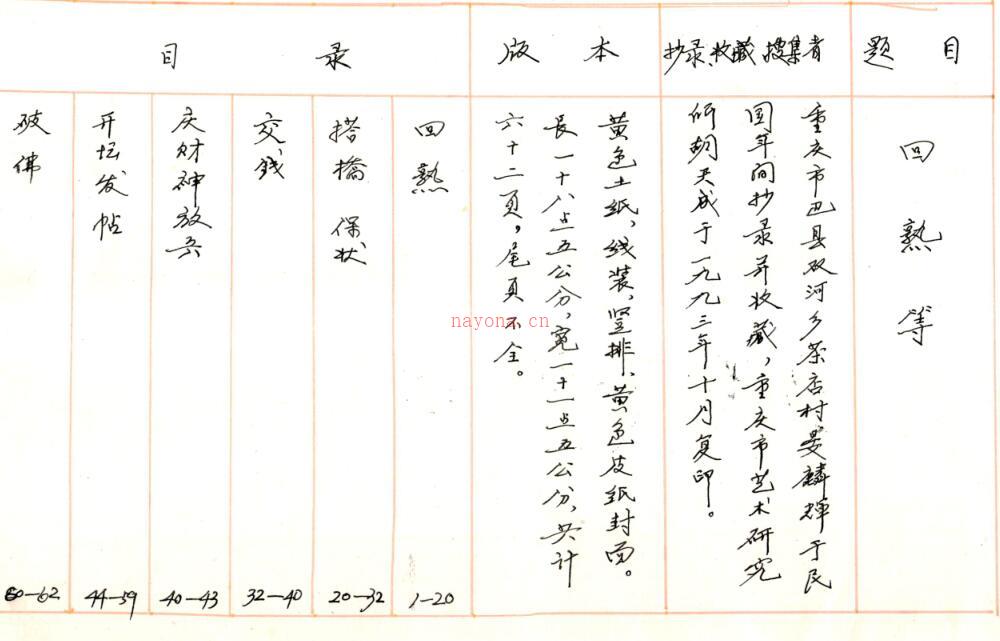 题目
回熟等
抄录、收藏、搜集者
重庆市巴县双河乡茶店村晏麟辉于民
国年间抄录并收藏，重庆市艺术研究
所胡天成于一九九三年十月复印。
版本
黄色土纸，线装，竖排，黄色皮纸封面。
长一十八点五公分，宽一十一点五公分，共计
六十二页，尾页不全。
目录
回熟
1—20
搭橋 保状
20—32
交钱
32—40
庆财神放兵
40—43
开坛发帖
44—59
破佛
60—62
nayona.cn